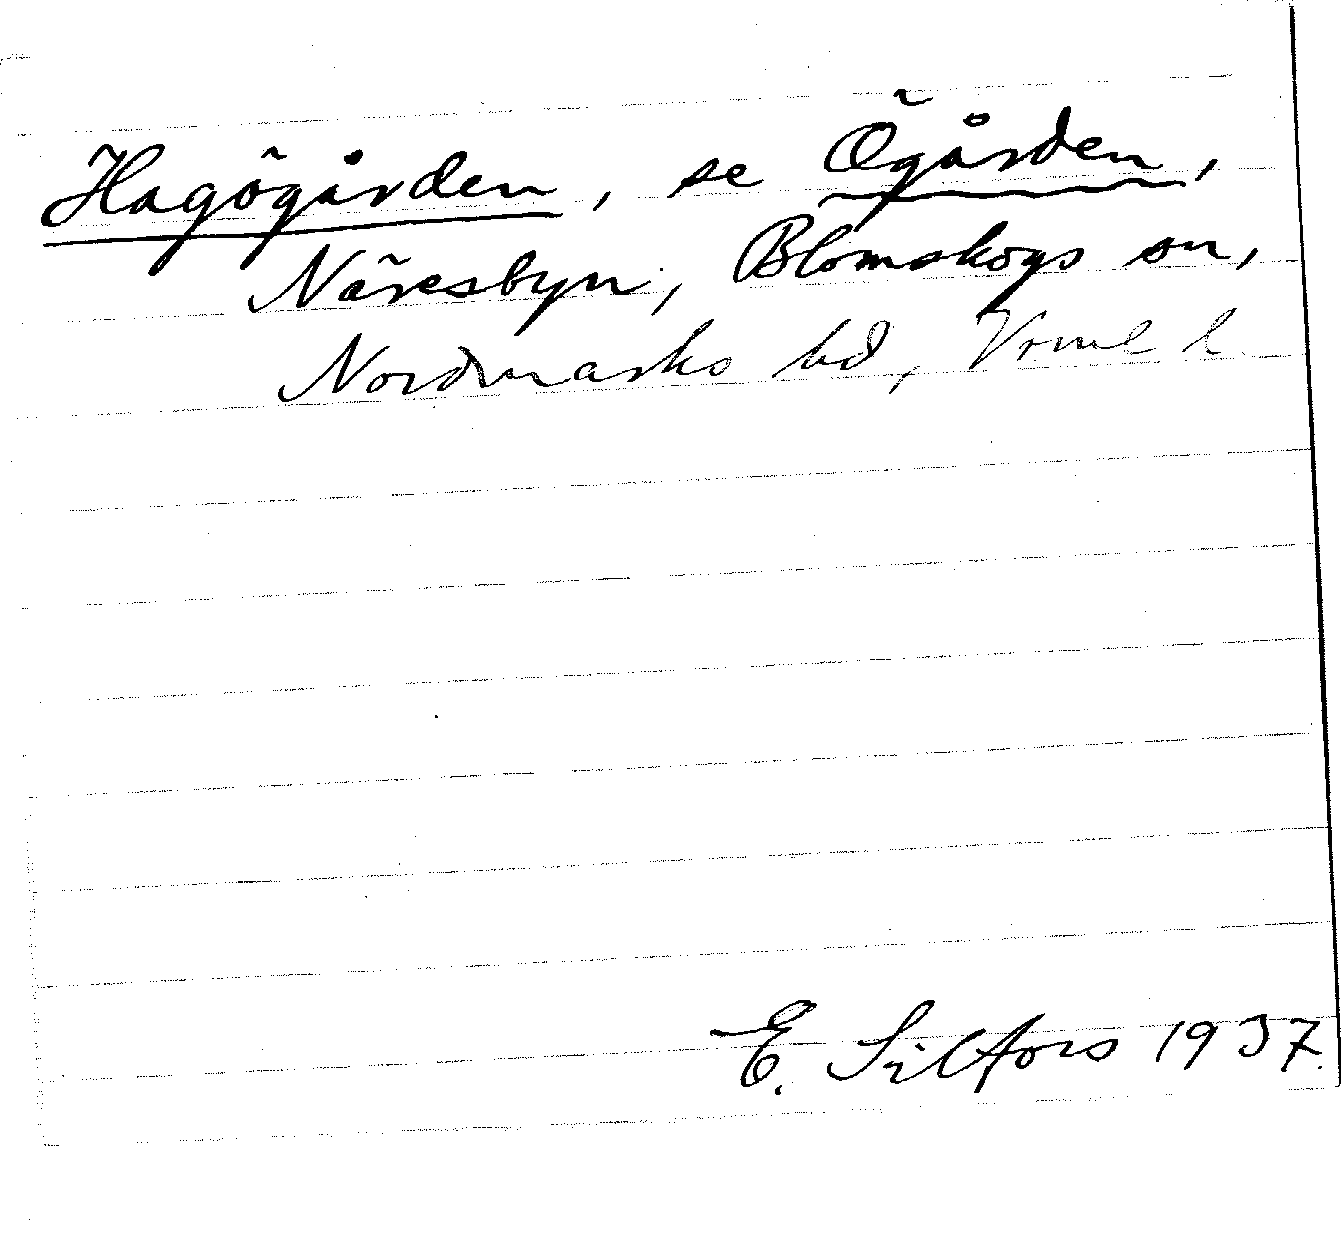 Hagögården, se Ögården,
Näresbyn, Blomskogs sn,
Nordmarks hd, Vrml l
E. Silfors 1937.